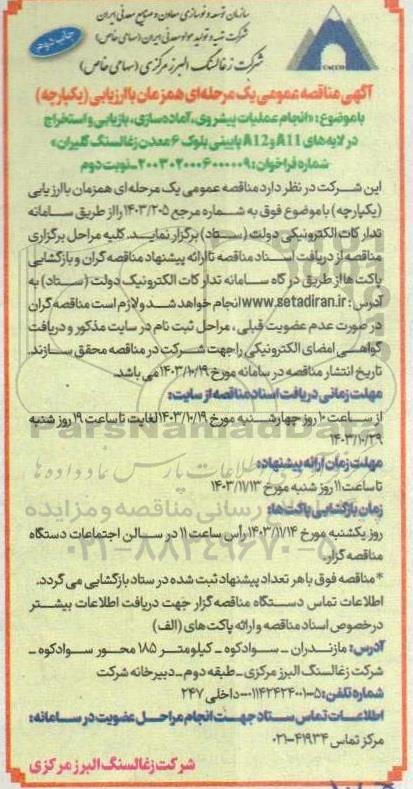 سازمان توسعه و نوسازی معادن و صنایع معدنی ایران
شرکت تهیه و تولید مواد معدنی ایران (سهامی خاص)
شرکت زغالسنگ البرز مرکزی (سهامی خاص)
چاپ دوم
آگهی مناقصه عمومی یک مرحله‌ای همزمان با ارزیابی (یکپارچه)
با موضوع: «انجام عملیات پیشروی، آماده‌سازی، بازیابی و استخراج
در لایه‌های A11 و A12 پایینی بلوک ۶ معدن زغالسنگ گلیران»
شماره فراخوان: ۲۰۰۳۰۲۰۰۰۶۰۰۰۰۰۹- نوبت دوم
این شرکت در نظر دارد مناقصه عمومی یک مرحله ای همزمان با ارزیابی
(یکپارچه) با موضوع فوق به شماره مرجع ۱۴۰۳/۲۰۵ را از طریق سامانه
تدارکات الکترونیکی دولت (ستاد) برگزار نماید. کلیه مراحل برگزاری
مناقصه از دریافت اسناد مناقصه تا ارائه پیشنهاد مناقصه گران و بازگشایی
پاکت ها از طریق درگاه سامانه تدارکات الکترونیک دولت (ستاد) به
آدرس: www.setadiran.ir انجام خواهد شد و لازم است مناقصه گران
در صورت عدم عضویت قبلی، مراحل ثبت نام در سایت مذکور و دریافت
گواهی امضای الکترونیکی را جهت شرکت در مناقصه محقق سازند.
تاریخ انتشار مناقصه در سامانه مورخ ۱۴۰۳/۱۰/۱۹ می باشد.
مهلت زمانی دریافت اسناد مناقصه از سایت:
از ساعت ۱۰ روز چهارشنبه مورخ ۱۴۰۳/۱۰/۱۹ لغایت تا ساعت ۱۹ روز شنبه
۱۴۰۳/۱۰/۲۹
مهلت زمان ارائه پیشنهاد:
تا ساعت ۱۱ روز شنبه مورخ ۱۴۰۳/۱۱/۱۳
زمان بازگشایی پاکت‌ها:
روز یکشنبه مورخ ۱۴۰۳/۱۱/۱۴ رأس ساعت ۱۱ در سالن اجتماعات دستگاه
مناقصه گزار.
*مناقصه فوق با هر تعداد پیشنهاد ثبت شده در ستاد بازگشایی می گردد.
اطلاعات تماس دستگاه مناقصه گزار جهت دریافت اطلاعات بیشتر
در خصوص اسناد مناقصه و ارائه پاکت های (الف)
آدرس: مازندران - سوادکوه - کیلومتر ۱۸۵ محور سوادکوه -
شرکت زغالسنگ البرز مرکزی - طبقه دوم - دبیرخانه شرکت
شماره تلفن: ۵-۰۱۱۴۲۴۲۴۰۰۱-داخلی ۲۴۷
اطلاعات تماس ستاد جهت انجام مراحل عضویت در سامانه:
مرکز تماس ۴۱۹۳۴-۰۲۱
شرکت زغالسنگ البرز مرکزی
ParsNamadData
۰۲۱-۸۸۳۴۹۶۷۰-۵